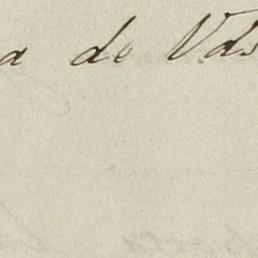 a de Vds